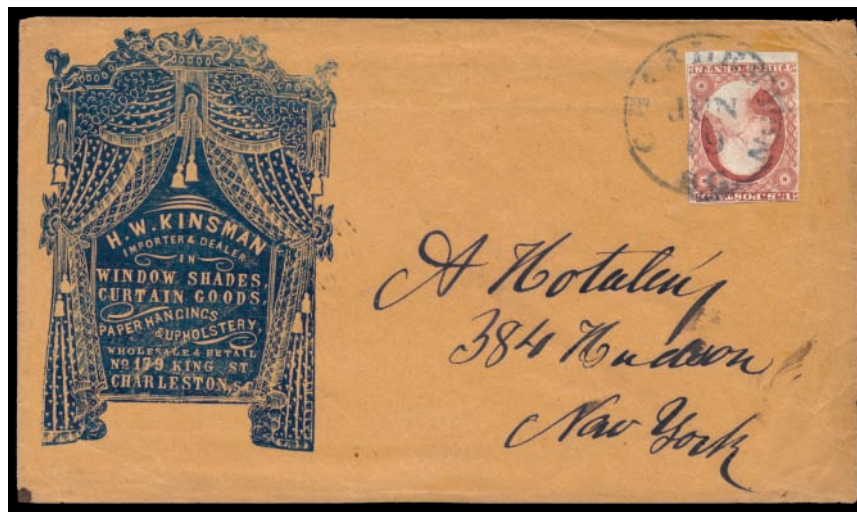 H. W. KINSMAN
IMPORTER & DEALER
IN
WINDOW SHADES,
CURTAIN GOODS,
PAPER HANGINGS
& UPHOLSTERY,
WHOLESALE & RETAIL
No 179 KING ST.
CHARLESTON, S.C.
JUN
U.S. POSTAGE
THREE CENTS
A Hotaling
384 Hudson
New York